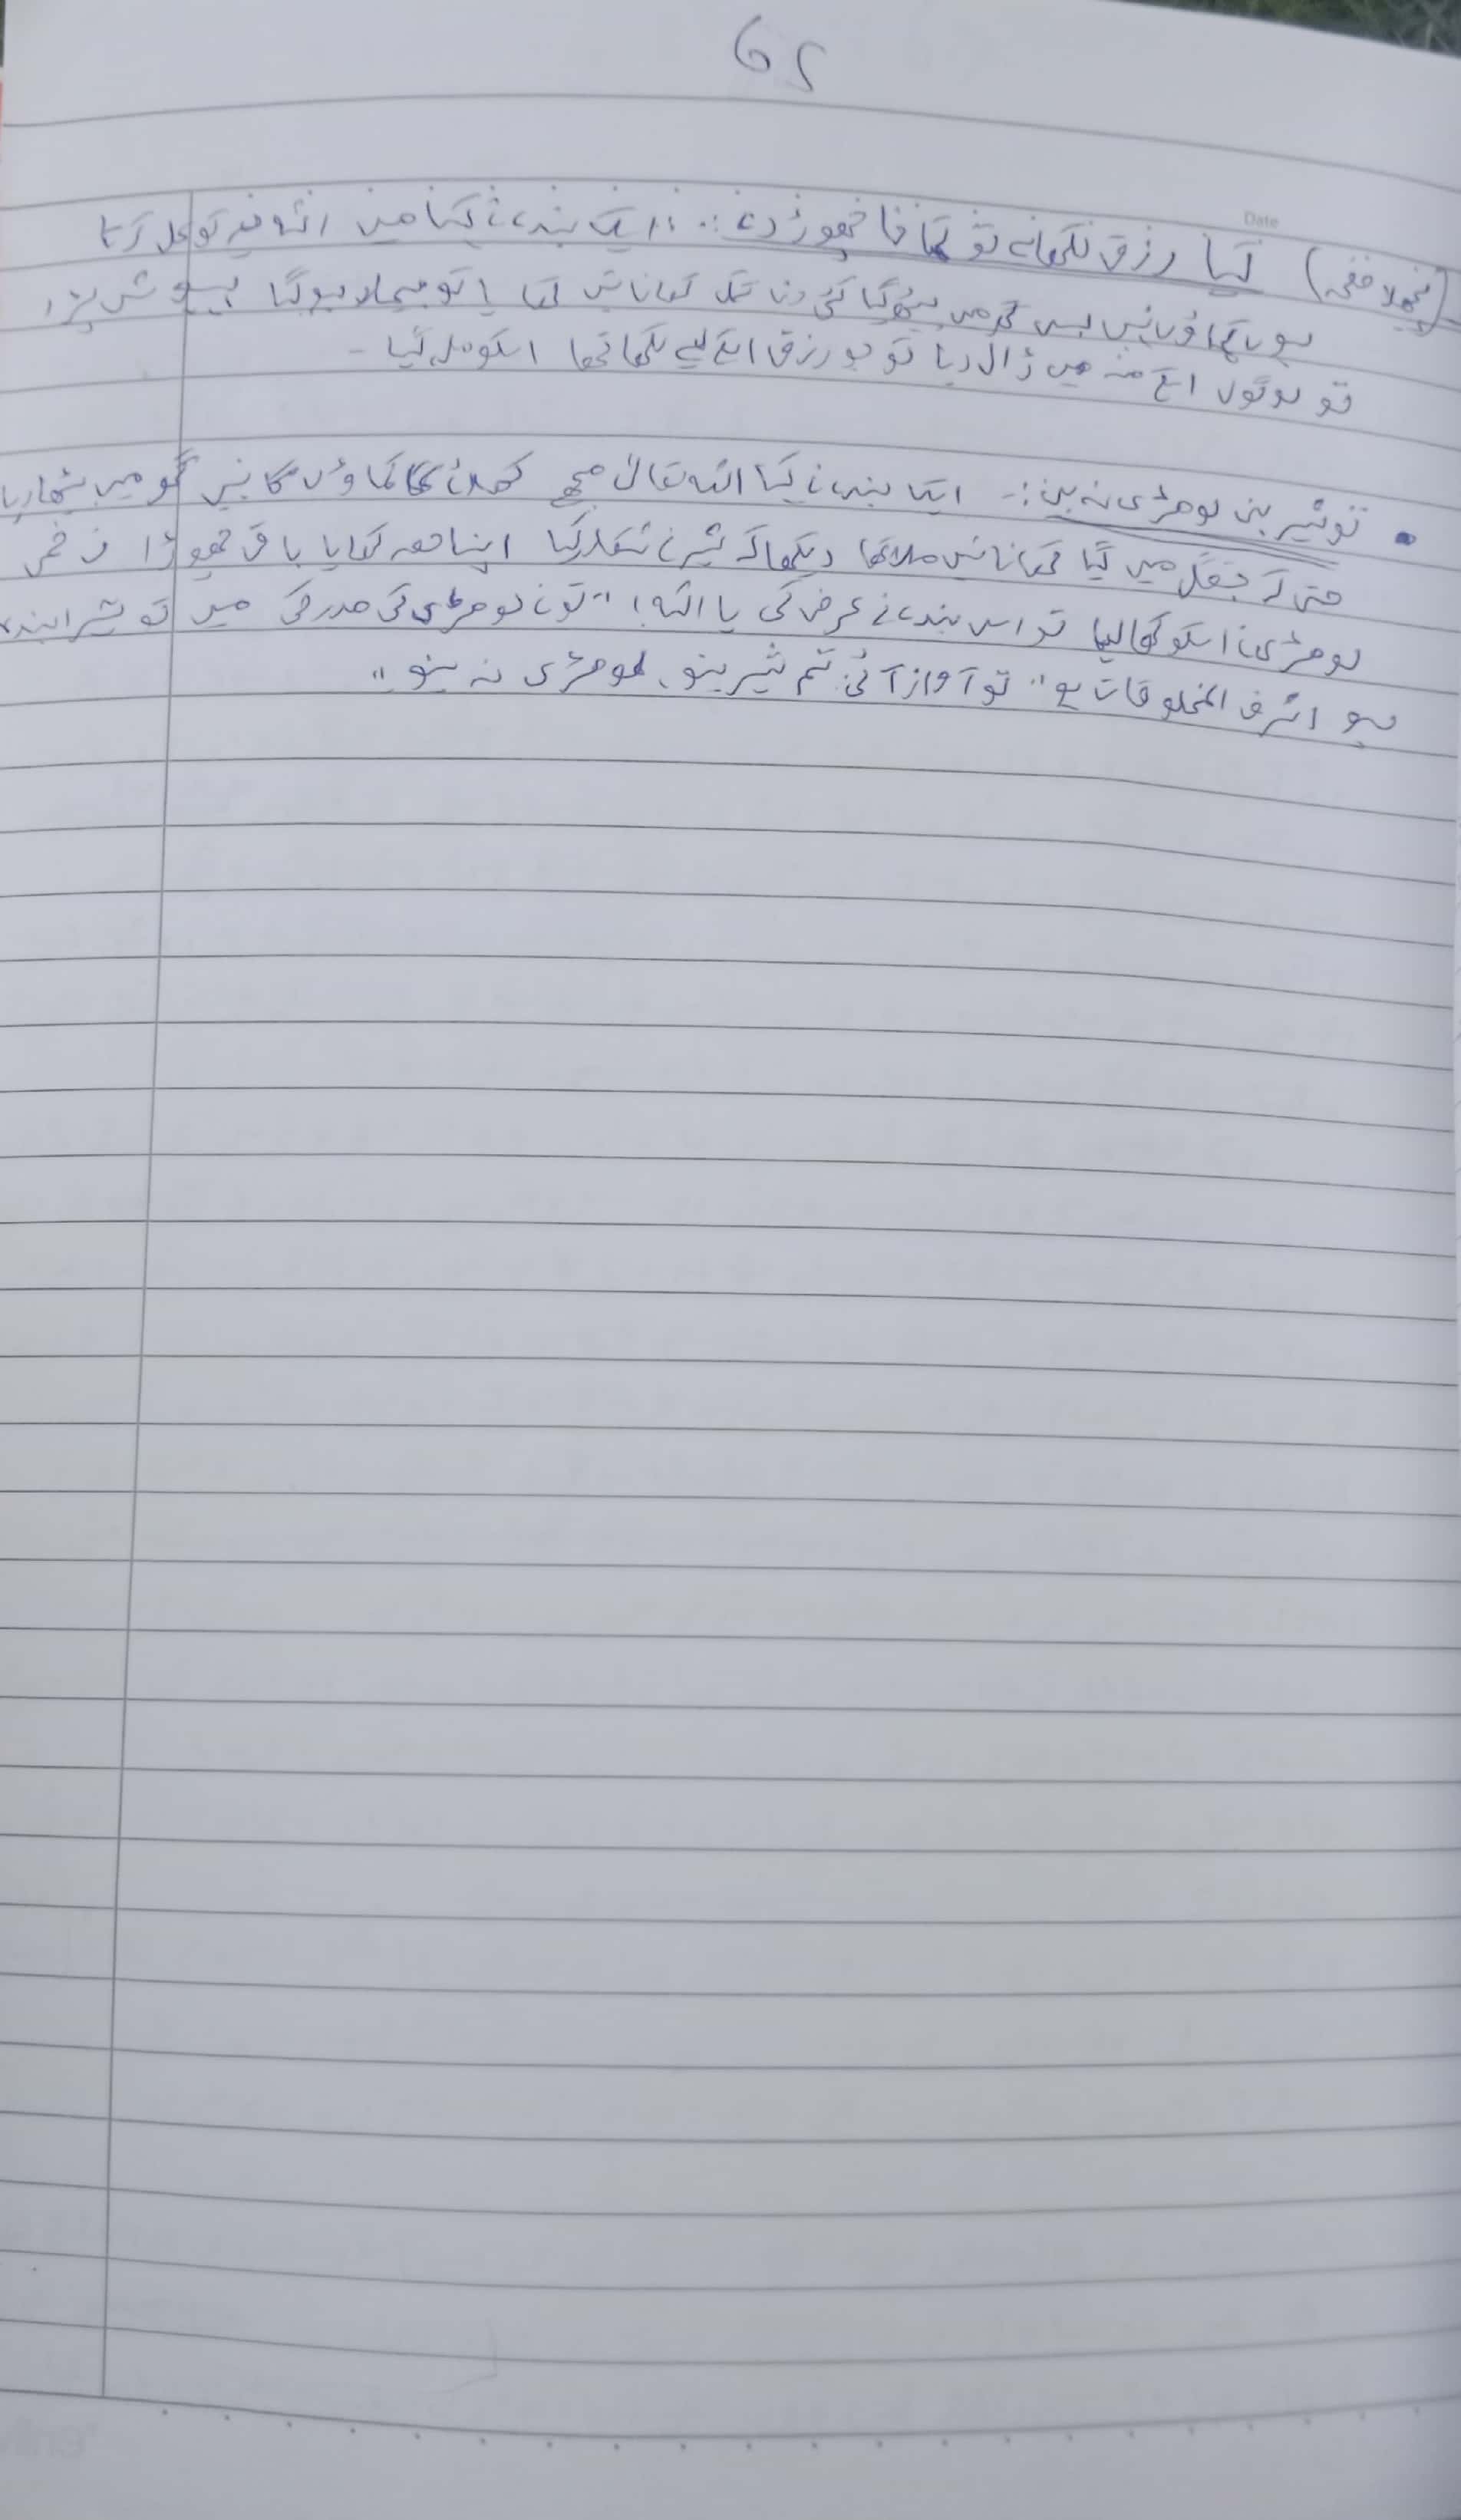 Date
(پچھلا صفحہ) کیا رزق لکھا ہے تو کمانا چھوڑ دے :- ایک بندے نے کہا میں اللہ پر توکل کرتا
ہوں کماؤں نہیں بس گھر میں بیٹھ گیا کئی دن تک کھانا نہیں کھایا تو بیمار ہو گیا بے ہوش پڑا
تو لوگوں اسکے منہ میں ڈال دیا تو جو رزق اسکے لیے لکھا تھا اسکو مل گیا ۔
• تو شیر بن لومڑی نہ بن :- ایک بندے نے کہا اللہ تعالیٰ مجھے کھلائے گا کماؤں گا نہیں گھر میں بیٹھا رہا
حتی کہ جنگل میں گیا کھانا نہیں ملا تھا دیکھا کہ شیر نے شکار کیا اپنا حصہ کھایا باقی چھوڑا زخمی
لومڑی نے اسکو کھا لیا تو اس بندے نے عرض کی یا اللہ! "تو نے لومڑی کی مدد کی میں تو تیرا بندہ
ہو اشرف المخلوقات ہو" تو آواز آئی: تم شیر بنو، لومڑی نہ بنو"